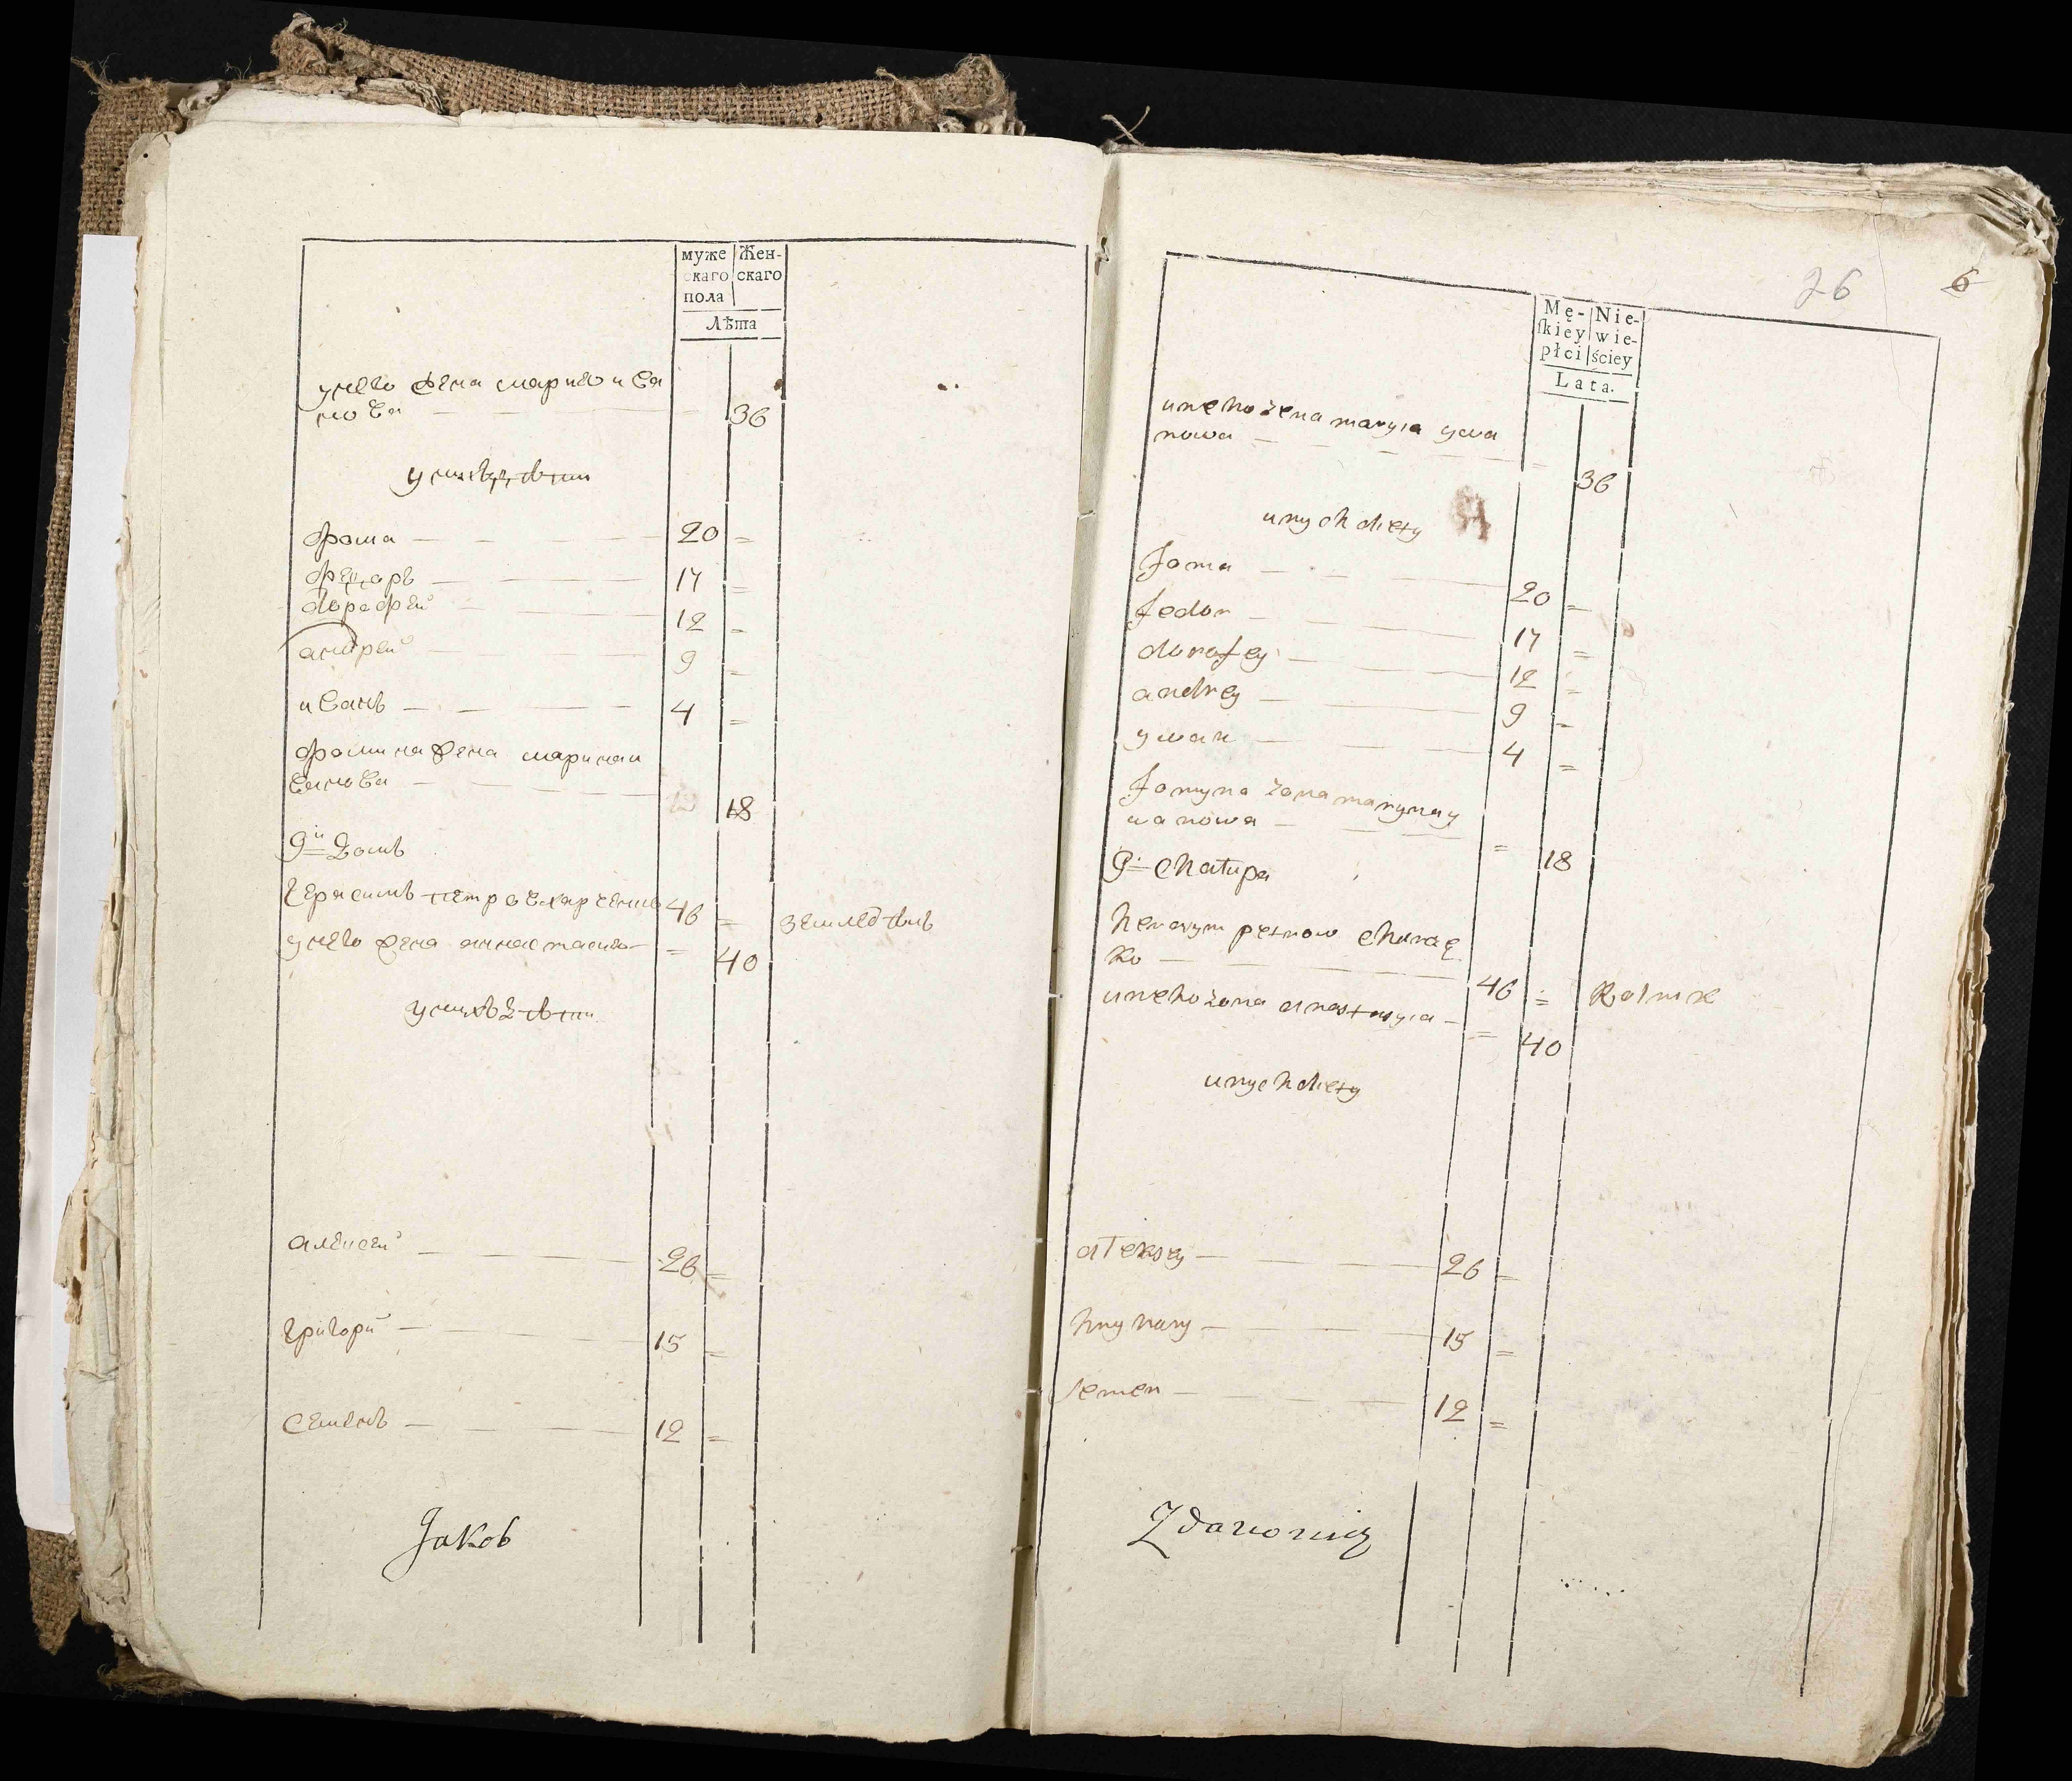 муже Жен-
скаго скаго
пола
Лѣта
унего жена мариѩ ива
нова — 36
уних дѣти
фома — 20 =
федоръ — 17 =
дорофей — 12 =
андрей — 9 =
иванъ — 4 =
фомина жена марина и
ванова — 18
9й домъ
герасимъ петровъ 46 = земледѣлъ
унего жена анастасиѩ — = 40
унихъ дѣти
алексей — 26 =
григори — 15 =
семенъ — 12 =
Jakob
26 6
Mę- Nie-
skiey wie-
płci ściey
Lata.
uneho żena maryia ywa
nowa — = 36
unych diety
foma — 20 =
fedor — 17 =
dorofey — 12 =
andrey — 9 =
ywan — 4 =
fomyna żona maryna y
wanowa — = 18
9. chałupa
herasym petrow
ko — 46 = Rolnik
uneho żona anastasyia — = 40
unych diety
alexsey — 26 =
hryhory — 15 =
semen — 12 =
Zdanowicz